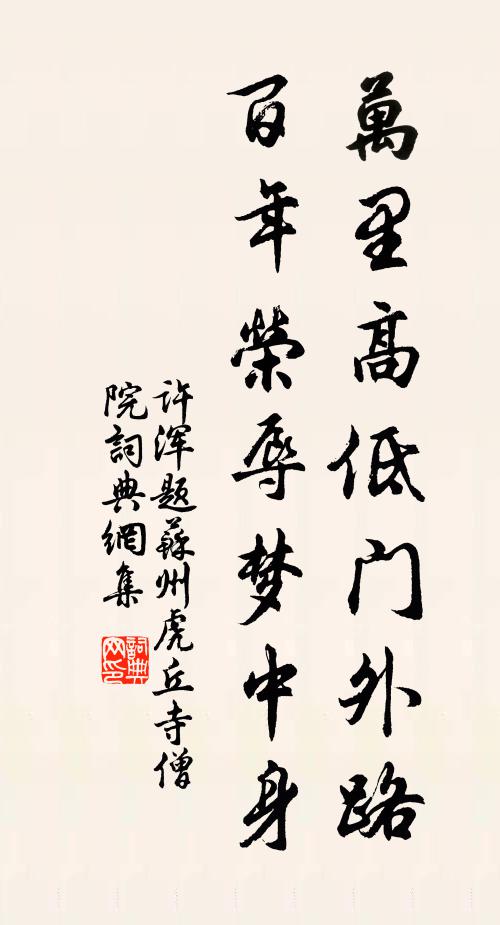 萬里高低门外路
百年榮辱梦中身
许浑题蘇州虎丘寺僧
院詞典網集
詞典
网印